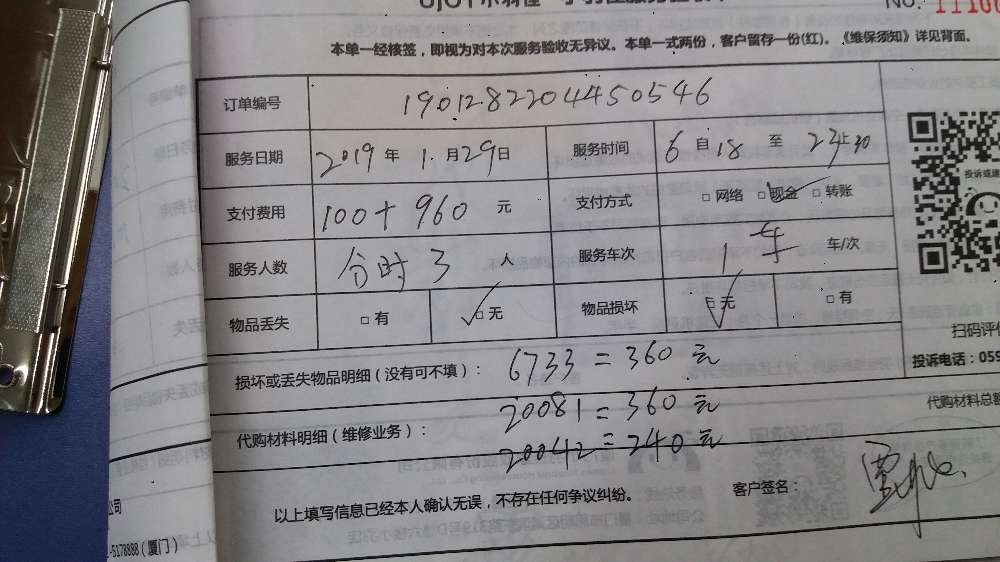 NO. 11100
本单一经核签，即视为对本次服务验收无异议。本单一式两份，客户留存一份(红)。《维保须知》详见背面。
订单编号 1901282204450546
服务日期 2019 年 1 月 29 日 服务时间 6 自 18 至 23止30
支付费用 100+960 元 支付方式 □ 网络 □ 现金 □ 转账
服务人数 分时3 人 服务车次 1车 车/次
物品丢失 □ 有 □ 无 物品损坏 □ 无 □ 有
投诉或建
扫码评价
损坏或丢失物品明细（没有可不填）： 6733=360元
投诉电话：059
20081=360元
代购材料总额
代购材料明细（维修业务）：
20042=240元
以上填写信息已经本人确认无误，不存在任何争议纠纷。 客户签名：
公司
-5178888（厦门）